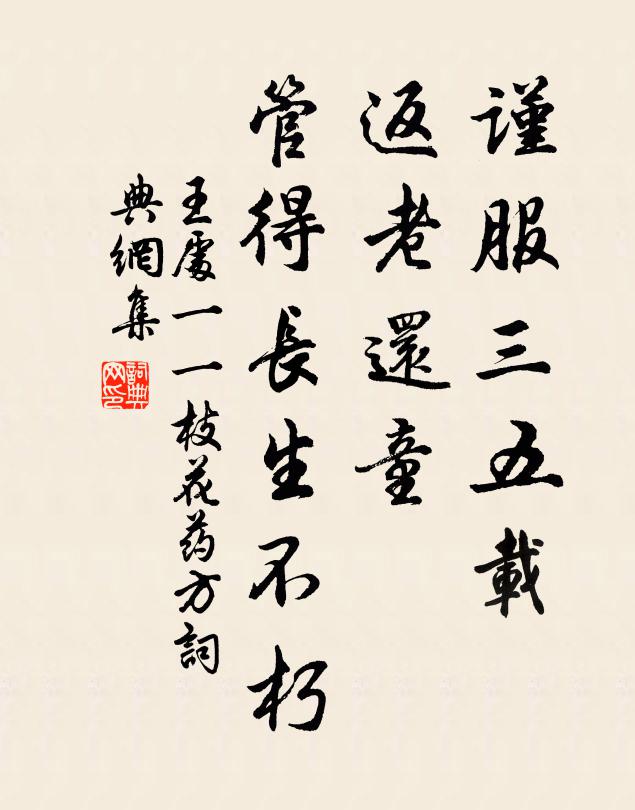 謹服三五載
返老還童
管得長生不朽
王處一一枝花药方詞
典網集
詞典网印